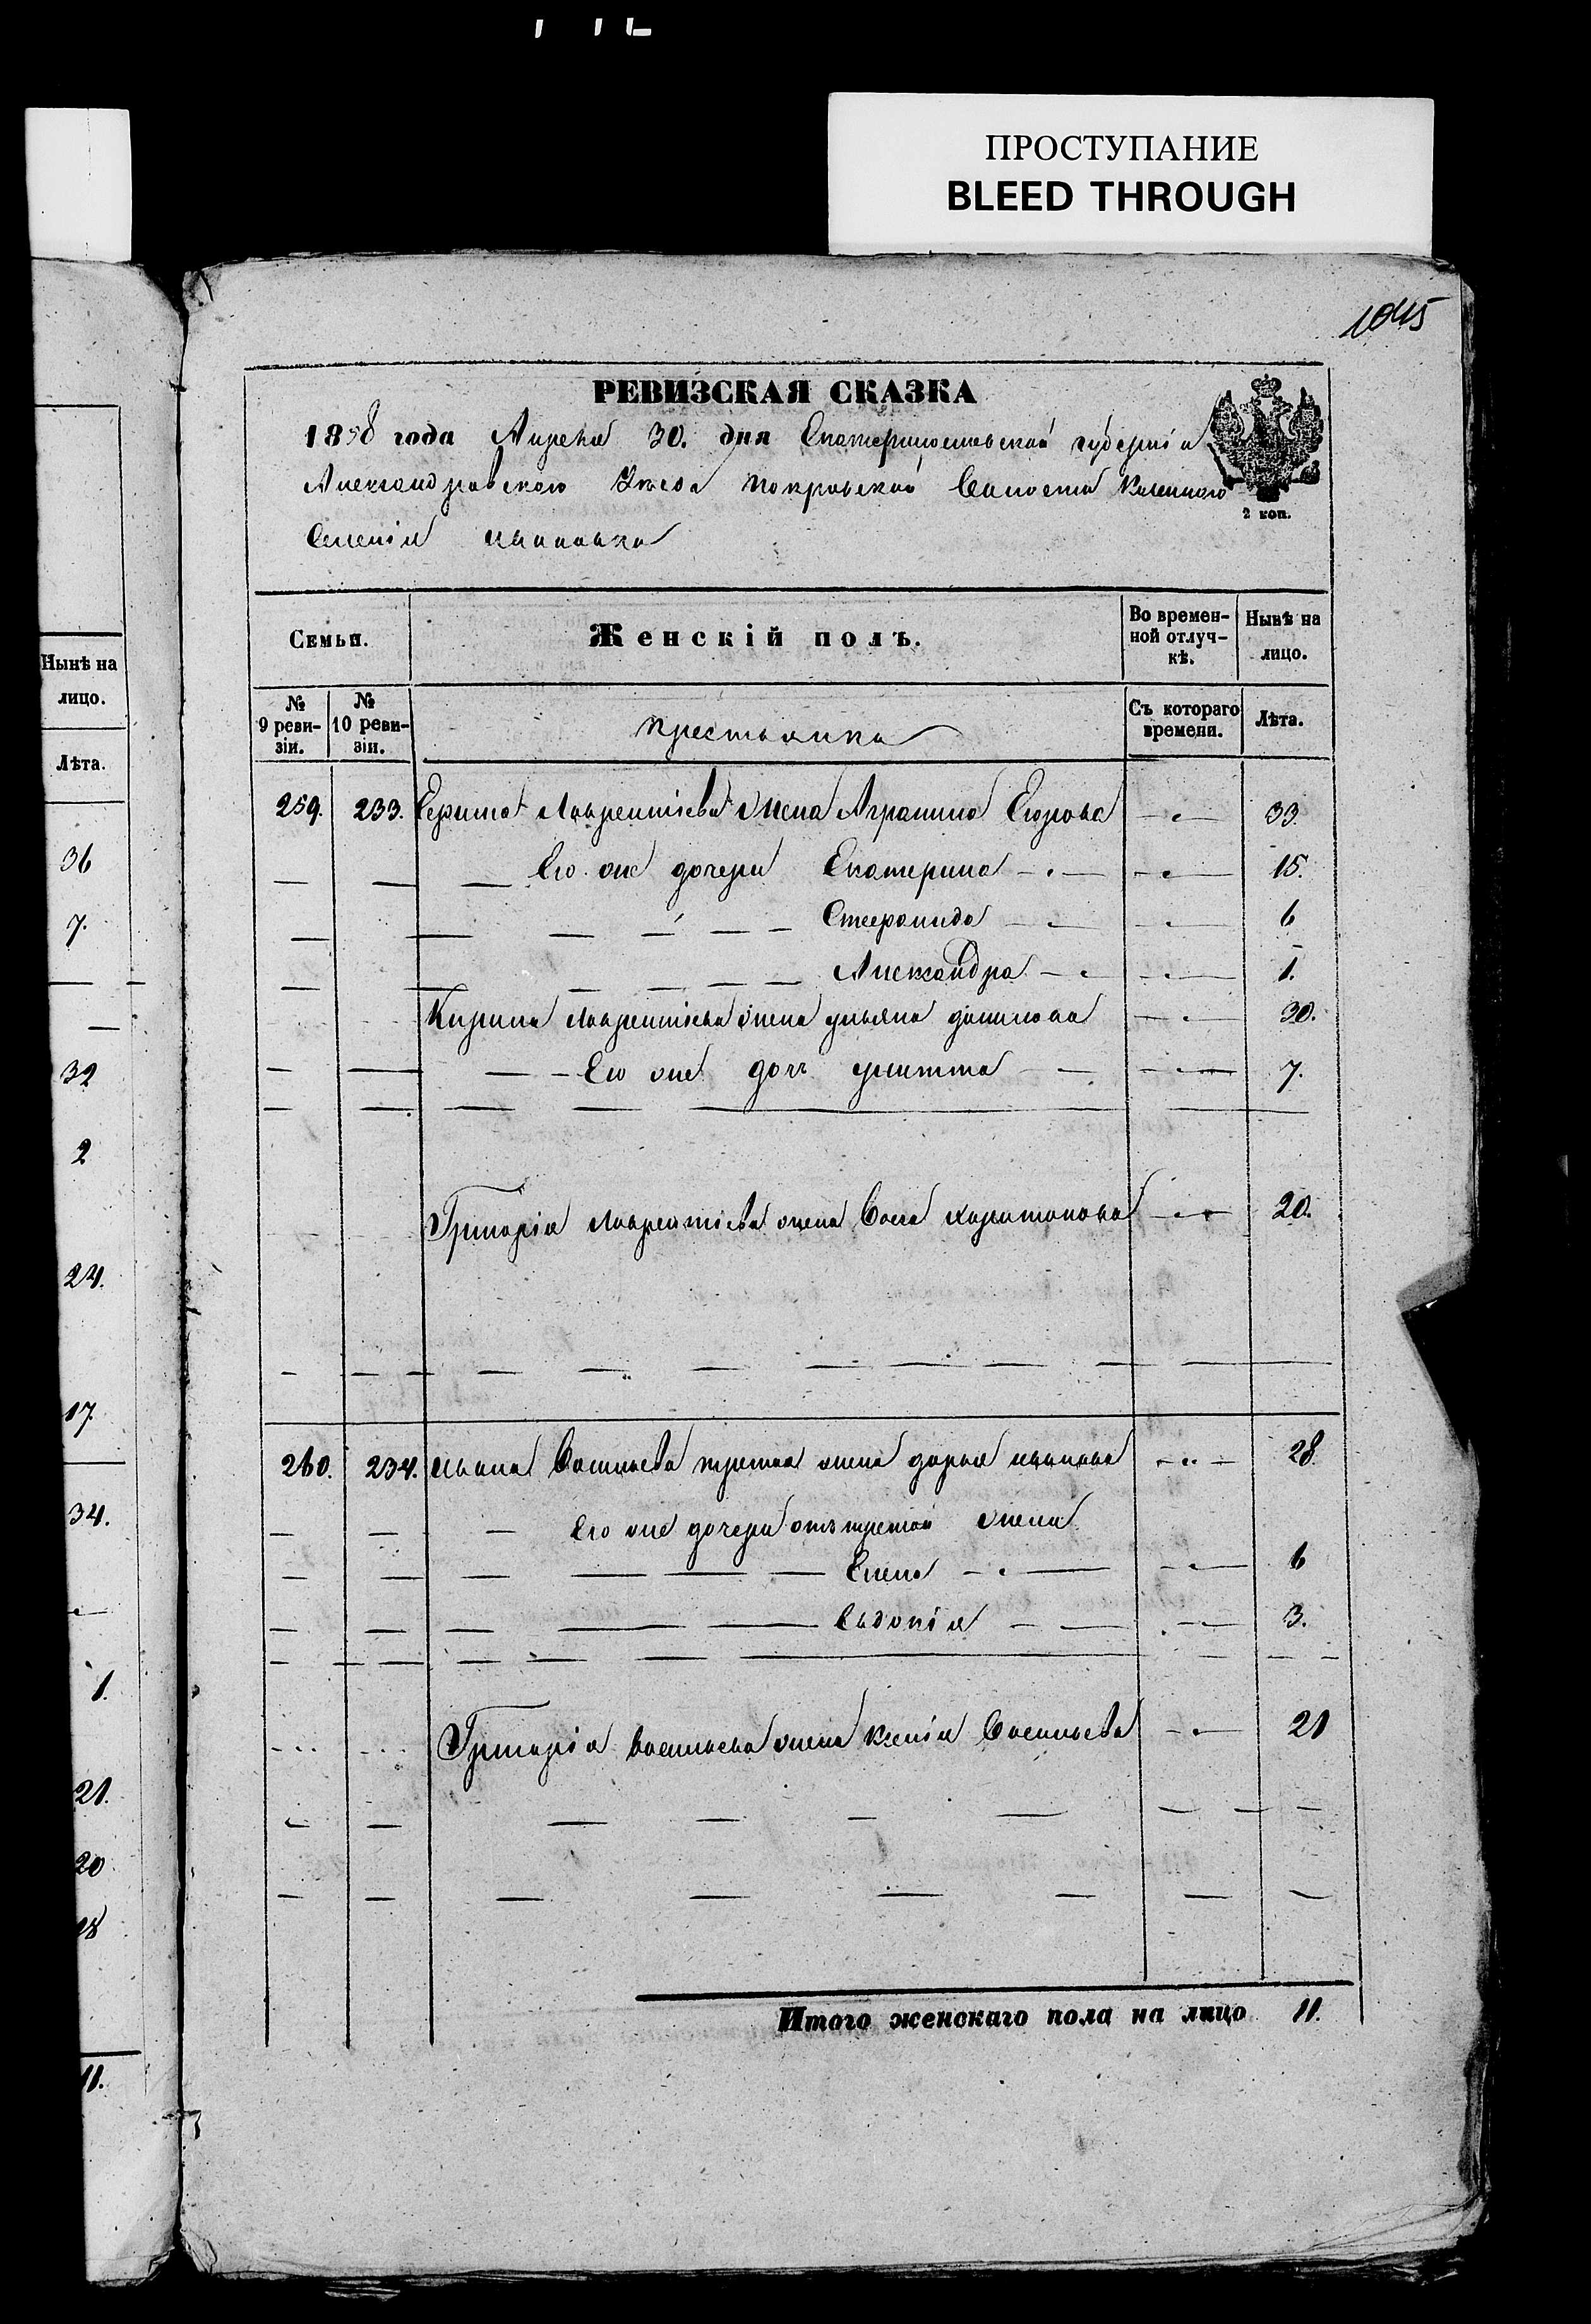 ПРОСТУПАНИЕ
BLEED THROUGH
1045
РЕВИЗСКАЯ СКАЗКА
1858 года Апреля 30. дня Екатеринославской губерніи
Александровскаго Уезда Покровской Волости Казенного
Селенія Ивановки
2 коп.
Семьи.
Женскій полъ.
Во времен-
ной отлуч-
кѣ.
Нынѣ на
лицо.
№
9 реви-
зіи.
№
10 реви-
зіи.
Крестьянка
Съ котораго
времени.
Лѣта.
259. 233. Лаврентіева жена Аграпина Егорова 33
Его же дочери Екатерина 15.
6
Александра 1.
Кирила Лаврентіева жена ульяна данилова 30.
Его же дочь улитта 7.
Григорія Лаврентіева жена Харитонова 20.
260. 234. Ивана Васильева третая жена дарья иванова 28.
Его же дочери отъ третой жены
Елена 6
Евдокія 3.
Григорія Васильева жена Ксенія Васильева 21
Итого женскаго пола на лицо 11.
Нынѣ на
лицо.
Лѣта.
36
7.
32
2
24.
17
34.
1.
21.
20
18
11.